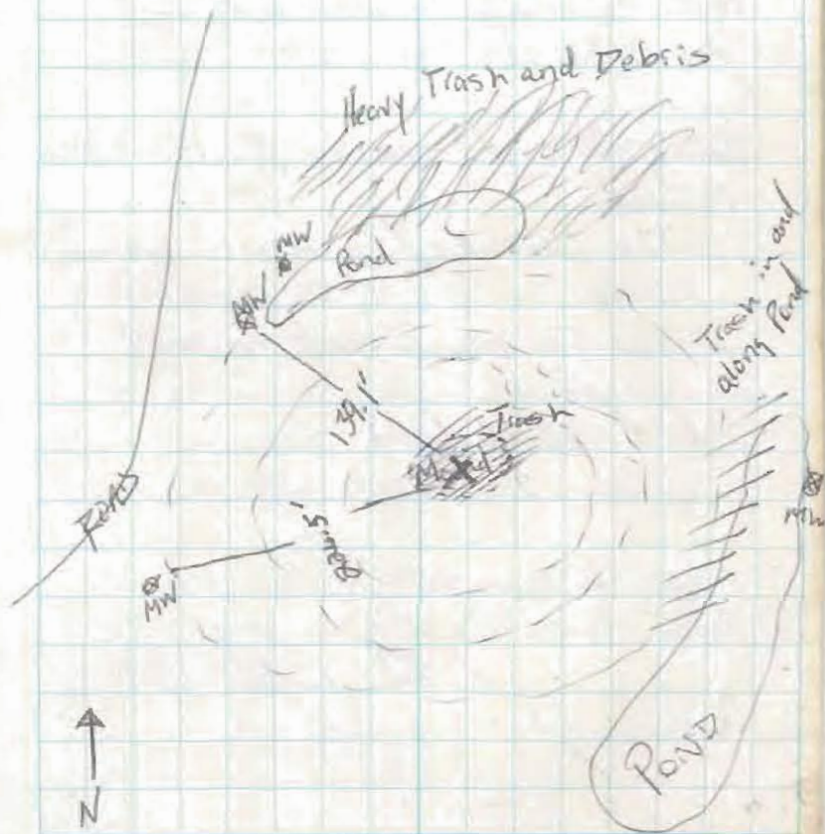 Heavy Trash and Debris
MW
Pond
MW
Trash in and
along Pond
139.1'
Trash
ROAD
MW
MW
POND
N